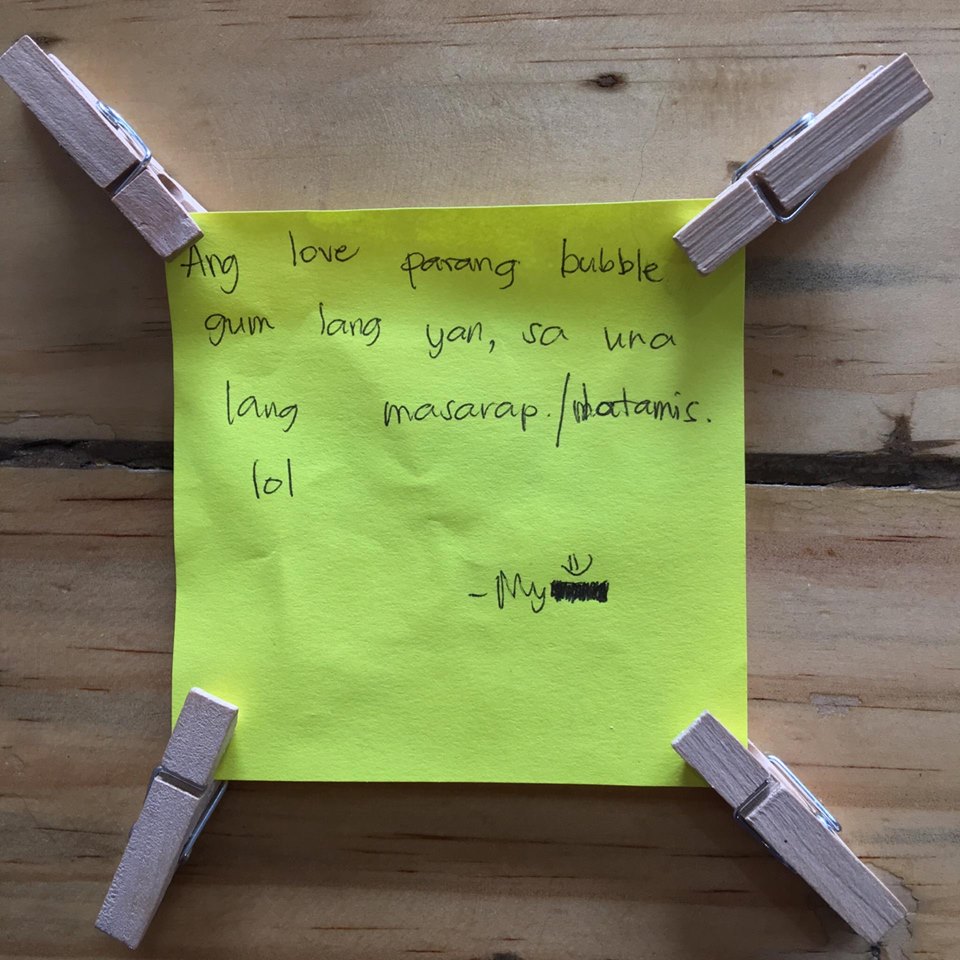 Ang love parang bubble
gum lang yan, sa una
lang masarap./matamis.
lol
-My